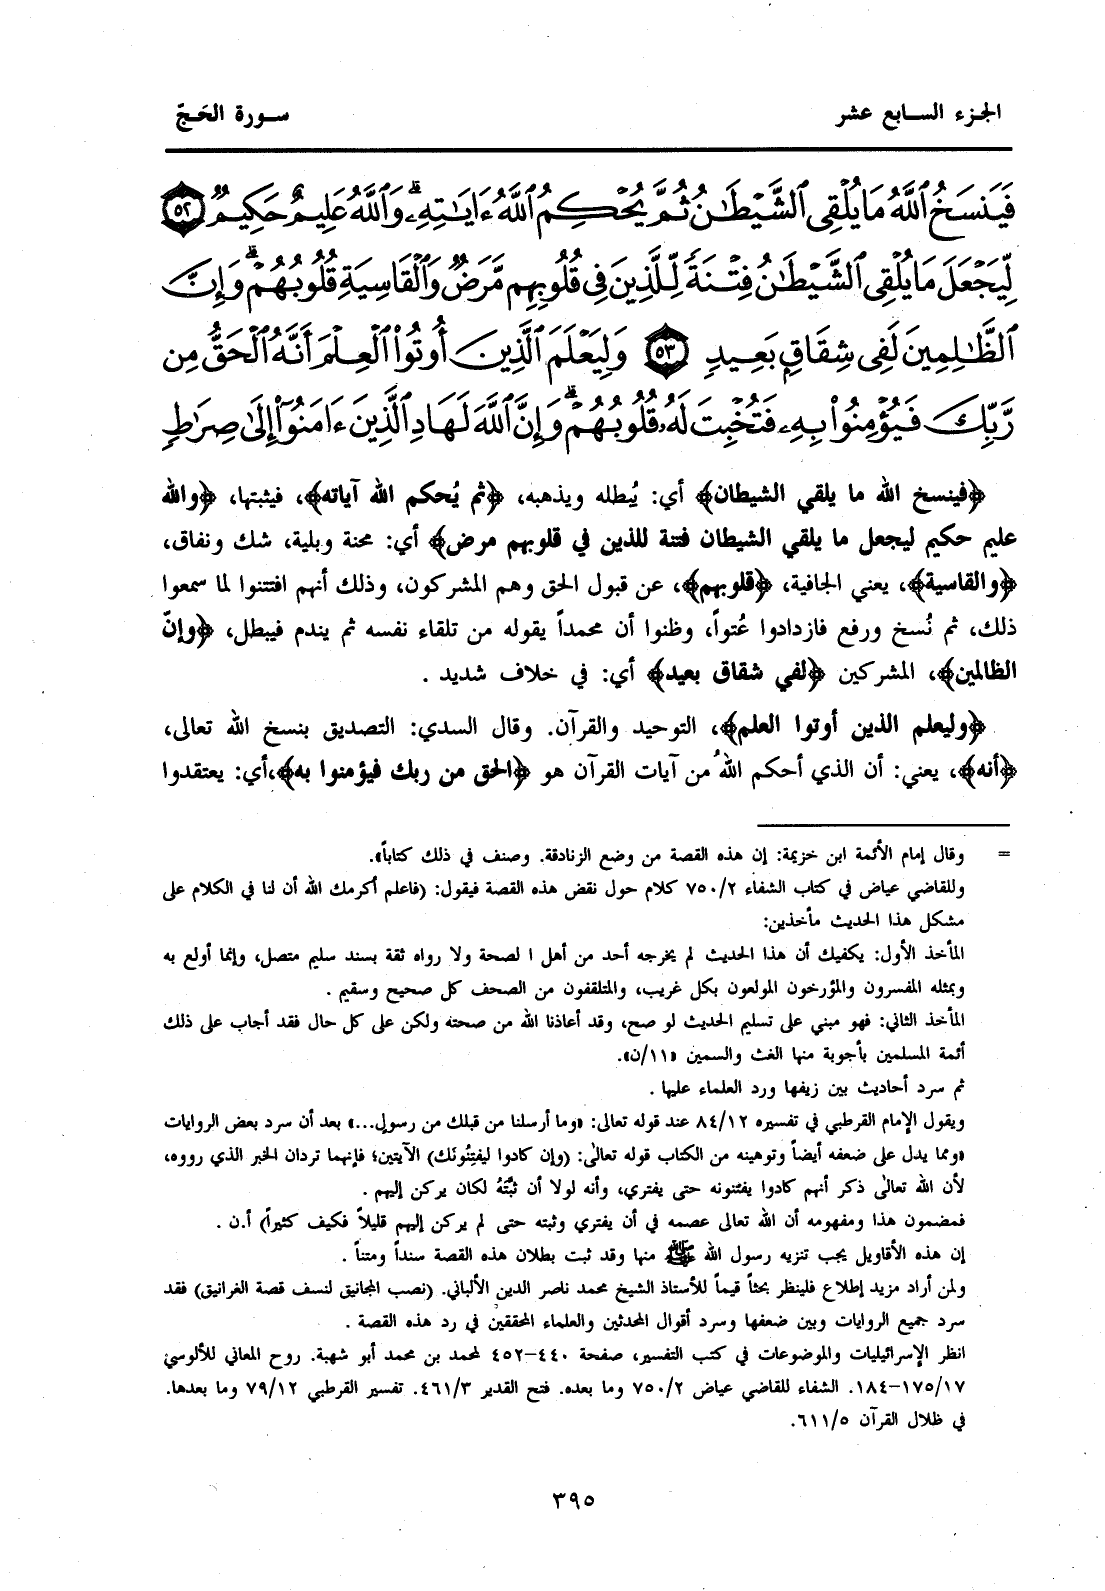 الجزء السابع عشر
سورة الحَجّ
فَيَنسَخُ ٱللَّهُ مَا يُلْقِى ٱلشَّيْطَـٰنُ ثُمَّ يُحْكِمُ ٱللَّهُ ءَايَـٰتِهِۦ ۗ وَٱللَّهُ عَلِيمٌ حَكِيمٌ ﴿٥٢﴾
لِّيَجْعَلَ مَا يُلْقِى ٱلشَّيْطَـٰنُ فِتْنَةً لِّلَّذِينَ فِى قُلُوبِهِم مَّرَضٌ وَٱلْقَاسِيَةِ قُلُوبُهُمْ ۗ وَإِنَّ
ٱلظَّـٰلِمِينَ لَفِى شِقَاقٍۭ بَعِيدٍ ﴿٥٣﴾ وَلِيَعْلَمَ ٱلَّذِينَ أُوتُوا۟ ٱلْعِلْمَ أَنَّهُ ٱلْحَقُّ مِن
رَّبِّكَ فَيُؤْمِنُوا۟ بِهِۦ فَتُخْبِتَ لَهُۥ قُلُوبُهُمْ ۗ وَإِنَّ ٱللَّهَ لَهَادِ ٱلَّذِينَ ءَامَنُوٓا۟ إِلَىٰ صِرَٰطٍ
﴿فينسخ الله ما يلقي الشيطان﴾ أي: يُبطله ويذهبه، ﴿ثم يُحكم الله آياته﴾، فيثبتها، ﴿والله
عليم حكيم ليجعل ما يلقي الشيطان فتنة للذين في قلوبهم مرض﴾ أي: محنة وبلية، شك ونفاق،
﴿والقاسية﴾، يعني الجافية، ﴿قلوبهم﴾، عن قبول الحق وهم المشركون، وذلك أنهم افتتنوا لما سمعوا
ذلك، ثم نُسخ ورفع فازدادوا عُتواً، وظنوا أن محمداً يقوله من تلقاء نفسه ثم يندم فيبطل، ﴿وإنّ
الظالمين﴾، المشركين ﴿لفي شقاق بعيد﴾ أي: في خلاف شديد .
﴿وليعلم الذين أوتوا العلم﴾، التوحيد والقرآن. وقال السدي: التصديق بنسخ الله تعالى،
﴿أنه﴾، يعني: أن الذي أحكم اللهُ من آيات القرآن هو ﴿الحق من ربك فيؤمنوا به﴾،أي: يعتقدوا
= وقال إمام الأئمة ابن خزيمة: إن هذه القصة من وضع الزنادقة. وصنف في ذلك كتاباً».
وللقاضي عياض في كتاب الشفاء ٧٥٠/٢ كلام حول نقض هذه القصة فيقول: (فاعلم أكرمك الله أن لنا في الكلام على
مشكل هذا الحديث مأخذين:
المأخذ الأول: يكفيك أن هذا الحديث لم يخرجه أحد من أهل ا لصحة ولا رواه ثقة بسند سليم متصل، وإنما أولع به
وبمثله المفسرون والمؤرخون المولعون بكل غريب، والمتلقفون من الصحف كل صحيح وسقيم .
المأخذ الثاني: فهو مبني على تسليم الحديث لو صح، وقد أعاذنا الله من صحته ولكن على كل حال فقد أجاب على ذلك
أئمة المسلمين بأجوبة منها الغث والسمين «١١/ن».
ثم سرد أحاديث بين زيفها ورد العلماء عليها .
ويقول الإمام القرطبي في تفسيره ٨٤/١٢ عند قوله تعالى: «وما أرسلنا من قبلك من رسول...» بعد أن سرد بعض الروايات
«ومما يدل على ضعفه أيضاً وتوهينه من الكتاب قوله تعالى: (وإن كادوا ليفتِنُونَك) الآيتين؛ فإنهما تردان الخبر الذي رووه،
لأن الله تعالى ذكر أنهم كادوا يفتنونه حتى يفتري، وأنه لولا أن ثبَّتَهُ لكان يركن إليهم .
فمضمون هذا ومفهومه أن الله تعالى عصمه في أن يفتري وثبته حتى لم يركن إليهم قليلاً فكيف كثيراً) أ.ن .
إن هذه الأقاويل يجب تنزيه رسول الله ﷺ منها وقد ثبت بطلان هذه القصة سنداً ومتناً .
ولمن أراد مزيد إطلاع فلينظر بحثاً قيماً للأستاذ الشيخ محمد ناصر الدين الألباني. (نصب المجانيق لنسف قصة الغرانيق) فقد
سرد جميع الروايات وبين ضعفها وسرد أقوال المحدثين والعلماء المحققين في رد هذه القصة .
انظر الإسرائيليات والموضوعات في كتب التفسير، صفحة ٤٤٠–٤٥٢ لمحمد بن محمد أبو شهبة. روح المعاني للألوسي
١٧٥/١٧–١٨٤. الشفاء للقاضي عياض ٧٥٠/٢ وما بعده. فتح القدير ٤٦١/٣. تفسير القرطبي ٧٩/١٢ وما بعدها.
في ظلال القرآن ٦١١/٥.
٣٩٥